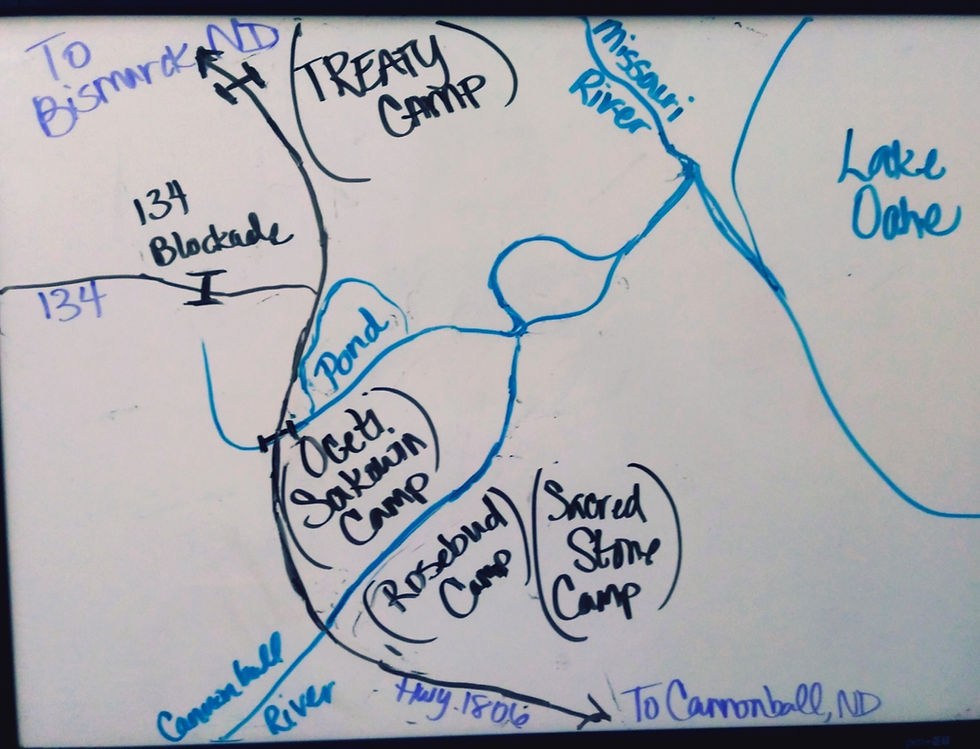 To
Bismarck, ND
TREATY
CAMP
Missouri
River
Lake
Oahe
134
Blockade
134
Pond
Oceti
Sakowin
Camp
Rosebud
Camp
Sacred
Stone
Camp
Cannonball
River
Hwy. 1806
To Cannonball, ND